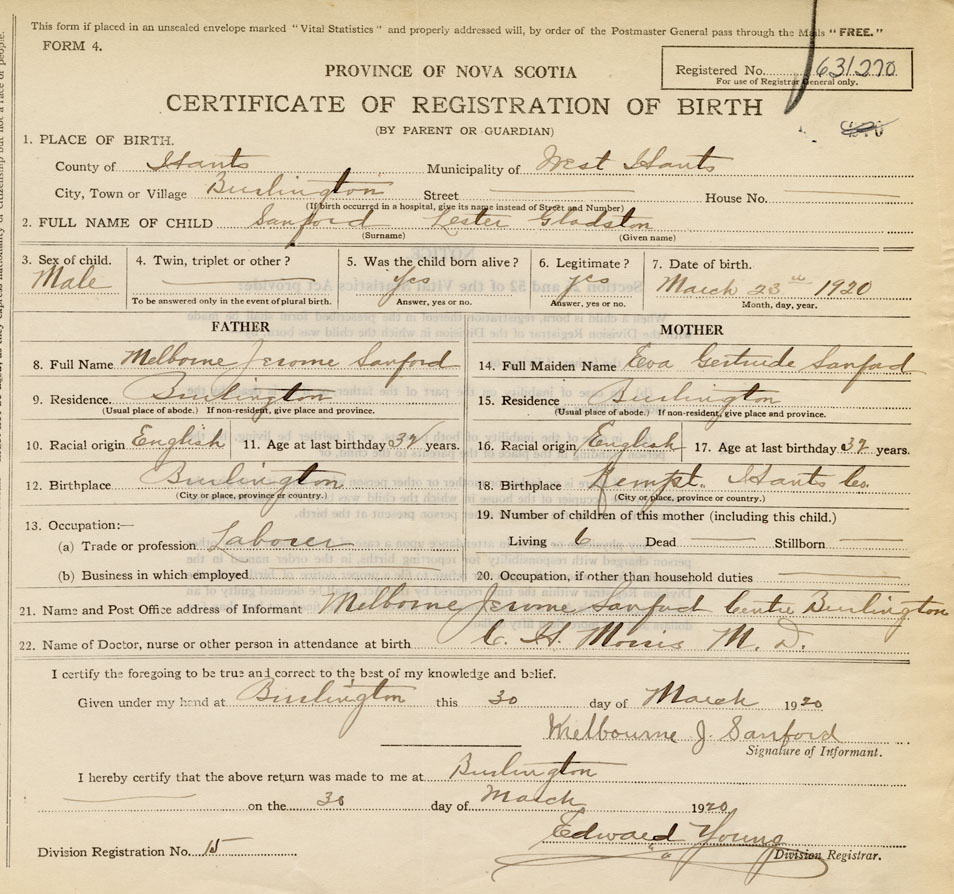 This form if placed in an unsealed envelope marked "Vital Statistics" and properly addressed will, by order of the Postmaster General pass through the Mails "FREE."
FORM 4.
Registered No. 631270
For use of Registrar General only.
PROVINCE OF NOVA SCOTIA
CERTIFICATE OF REGISTRATION OF BIRTH
(BY PARENT OR GUARDIAN)
1. PLACE OF BIRTH.
County of Hants Municipality of West Hants
City, Town or Village Burlington Street House No.
(If birth occurred in a hospital, give its name instead of Street and Number)
2. FULL NAME OF CHILD Sanford Lester Gladston
(Surname) (Given name)
3. Sex of child. 4. Twin, triplet or other? 5. Was the child born alive? 6. Legitimate? 7. Date of birth.
Male yes yes March 23th 1920
To be answered only in the event of plural birth. Answer, yes or no. Answer, yes or no. Month, day, year.
FATHER MOTHER
8. Full Name Melborne Jerome Sanford 14. Full Maiden Name Eva Gertrude Sanford
9. Residence. Burlington 15. Residence Burlington
(Usual place of abode.) If non-resident, give place and province. (Usual place of abode.) If non-resident, give place and province.
10. Racial origin English 11. Age at last birthday years. 16. Racial origin English 17. Age at last birthday years.
12. Birthplace Burlington 18. Birthplace Kempt. Hants Co.
(City or place, province or country.) (City or place, province or country.)
13. Occupation:— 19. Number of children of this mother (including this child.)
(a) Trade or profession Laborer Living 6 Dead Stillborn
(b) Business in which employed 20. Occupation, if other than household duties
21. Name and Post Office address of Informant Melborne Jerome Sanford Centre Burlington
22. Name of Doctor, nurse or other person in attendance at birth C. H. Morris M. D.
I certify the foregoing to be true and correct to the best of my knowledge and belief.
Given under my hand at Burlington this 30 day of March 1920
Melbourne J. Sanford
Signature of Informant.
I hereby certify that the above return was made to me at Burlington
on the 30 day of March 1920
Edward Young
Division Registration No. 15 Division Registrar.